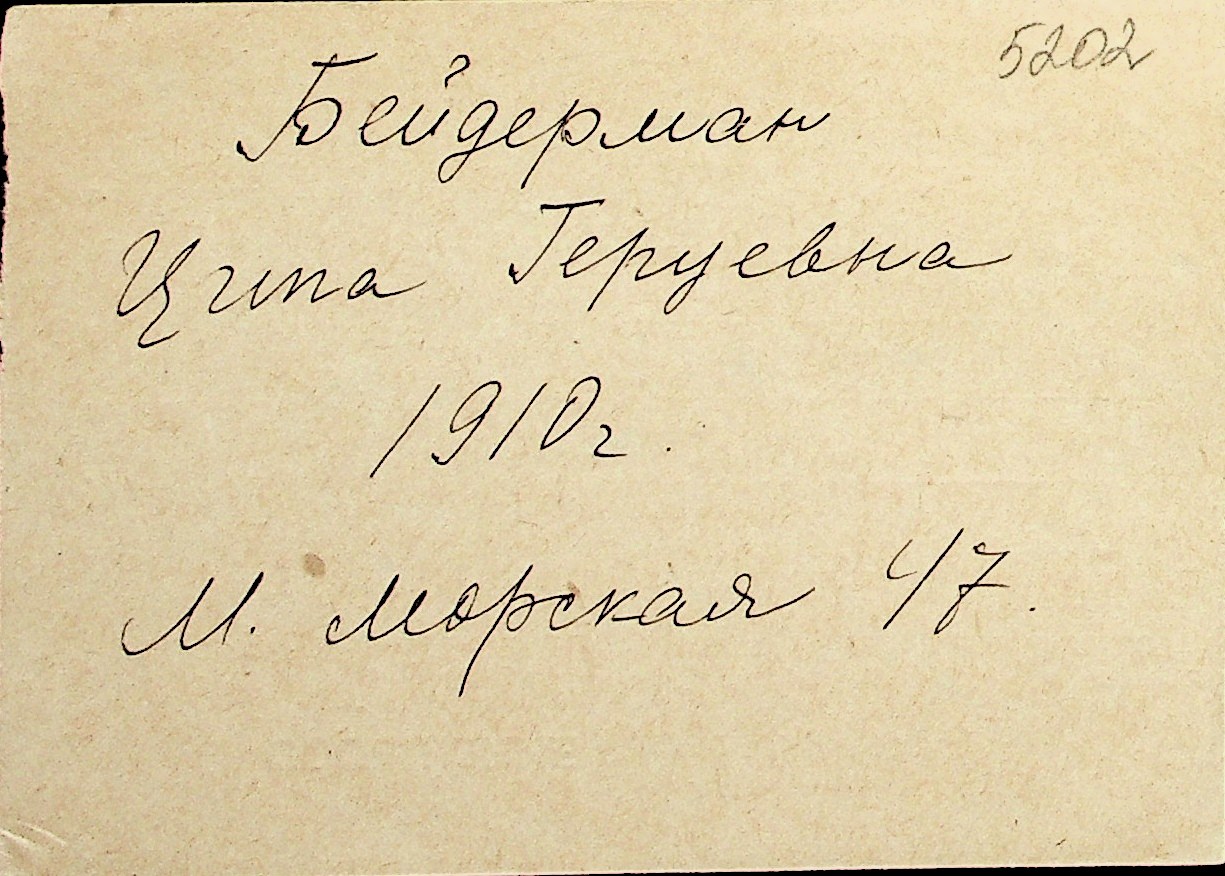 5202
Бейдерман
Ципа Герцевна
1910г.
М. Морская 47.